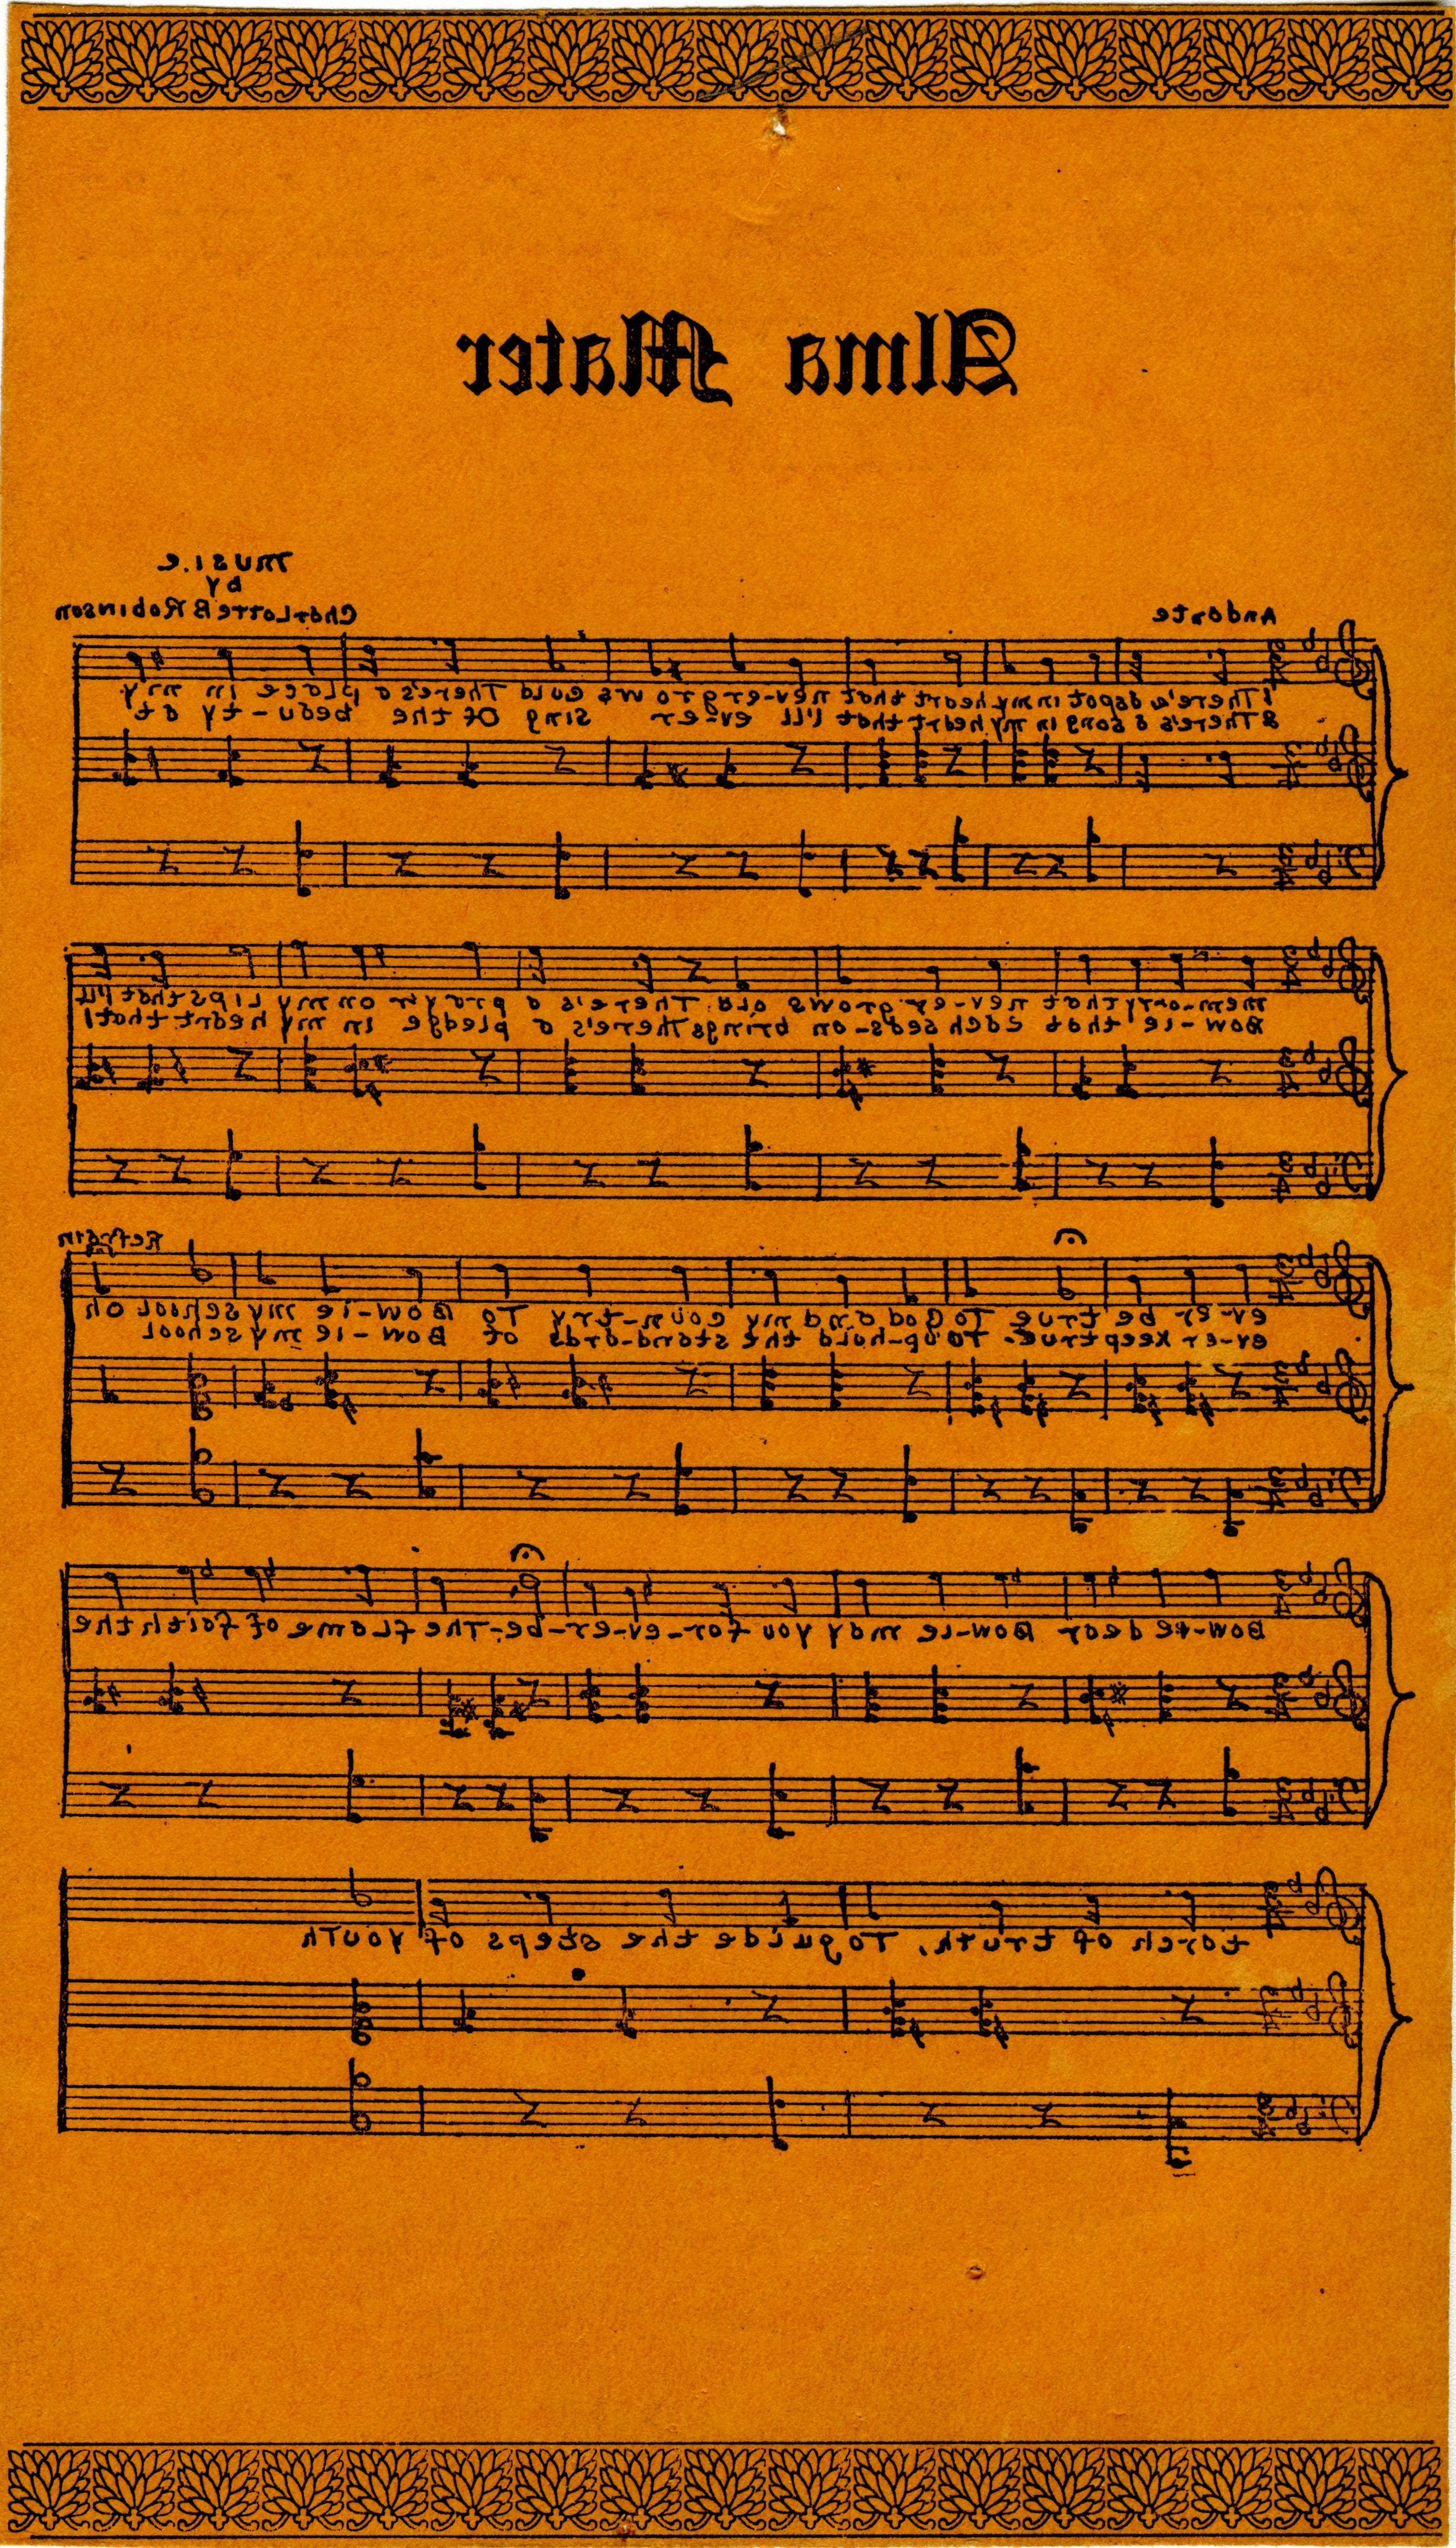 Alma Mater
Music
by
Charlotte B Robinson
Andante
1 There's a spot in my heart that nev-er grows cold There's a place in my
2 There's a song in my heart that I'LL ev-er sing Of the beau-ty at
mem-ory that nev-er grows old. There's a prayr on my Lips that I'LL
Bow-ie that each seas-on brings There's a pledge in my heart that I
Refrain
ev-er be true To God and my coun-try To Bow-ie my school Oh
ev-er keep true. To up-hold the stand-ards of Bow-ie my school
Bow-ie dear Bow-ie may you for-ev-er-be-The flame of faith the
torch of truth, To guide the steps of youth